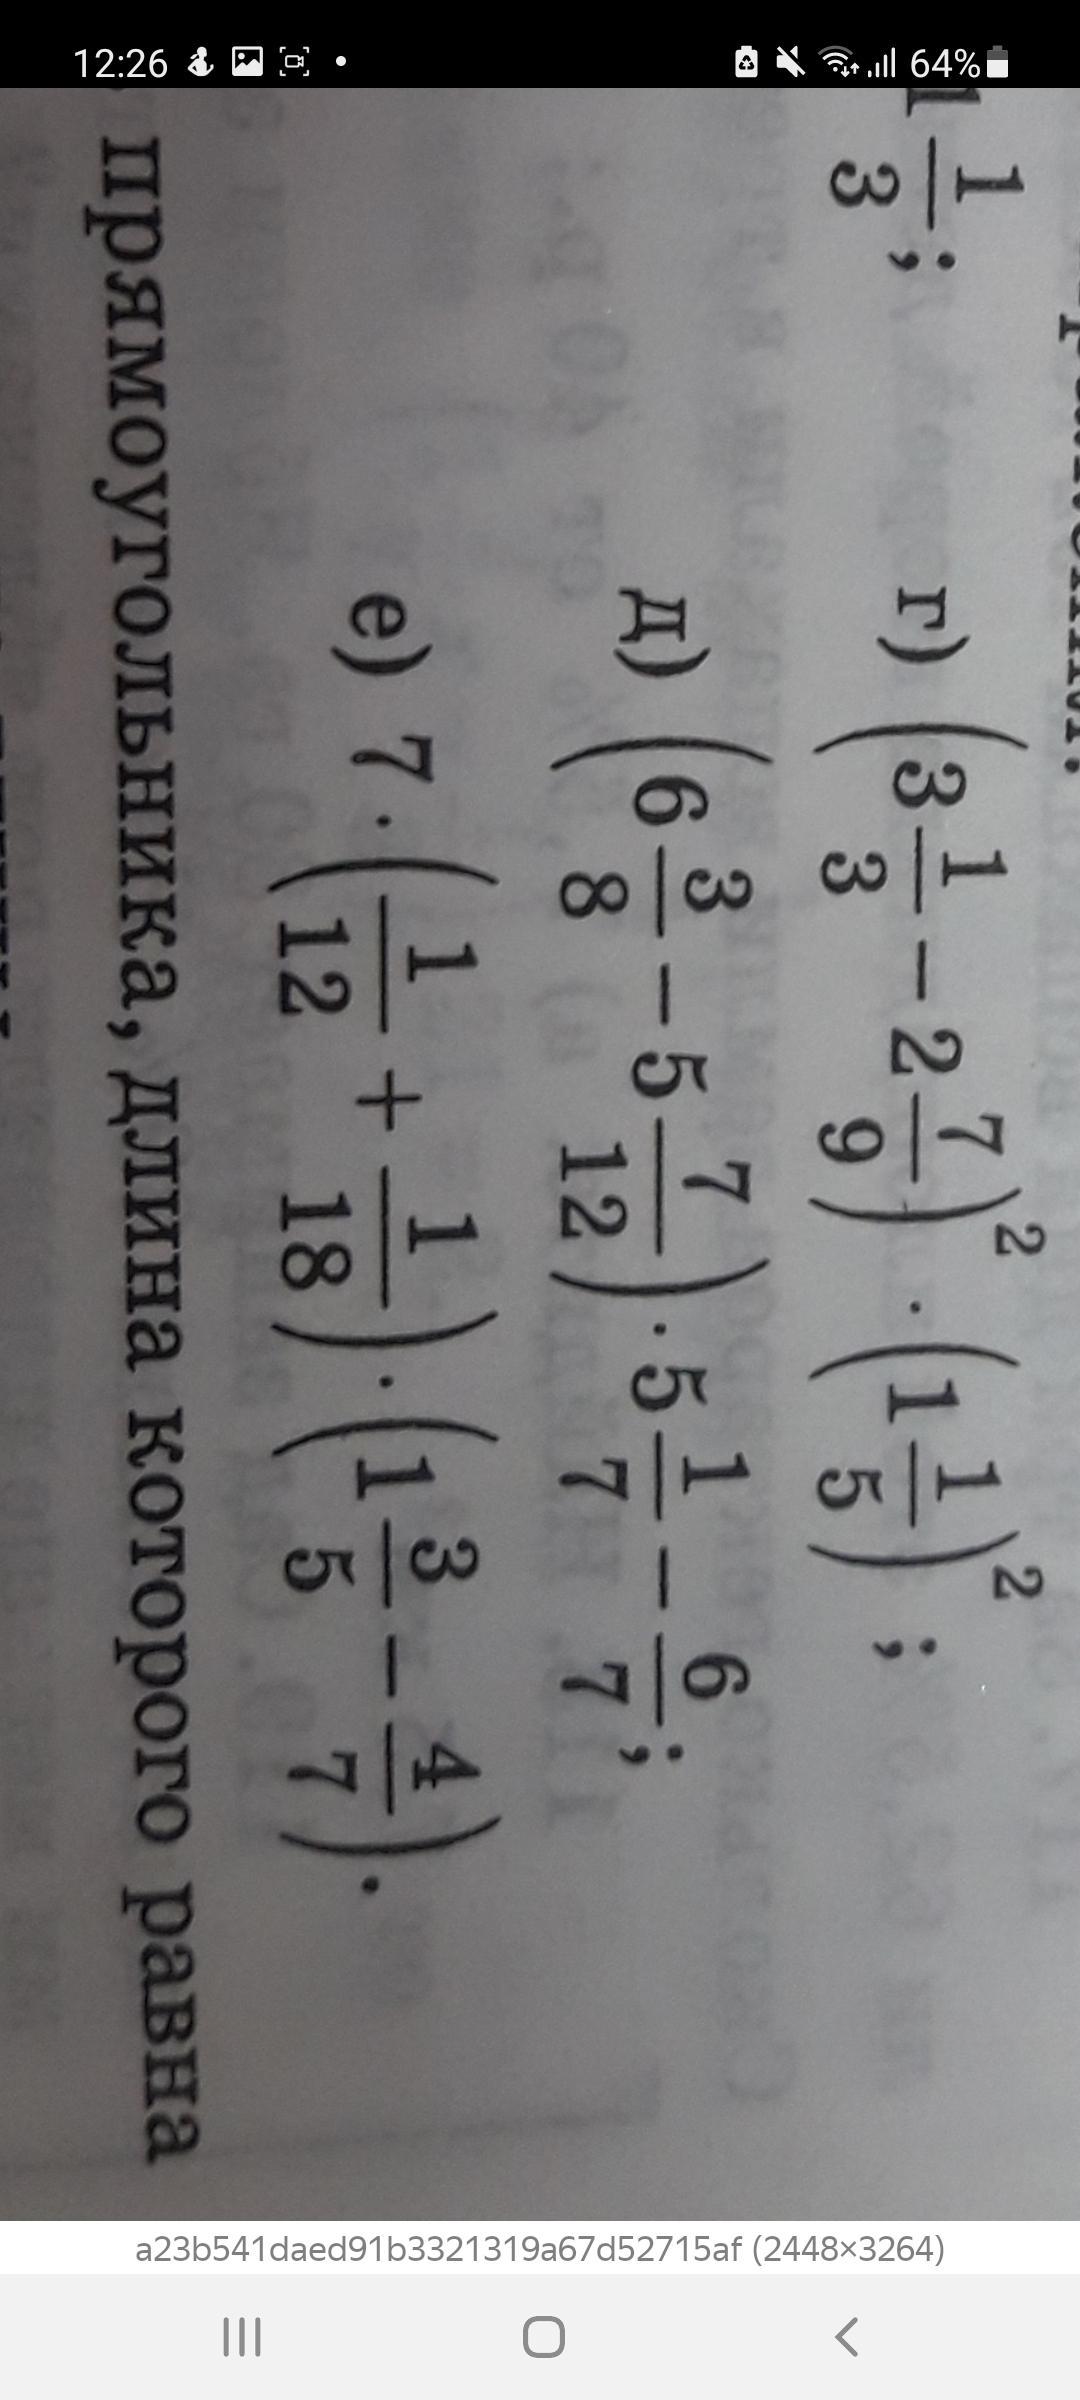 12:26 64%
1 1/3;
г) (3 1/3 − 2 7/9)² · (1 1/5)²;
д) (6 3/8 − 5 7/12) · 5 1/7 − 6/7;
е) 7 · (1/12 + 1/18) · (1 3/5 − 4/7).
прямоугольника, длина которого равна
a23b541daed91b3321319a67d52715af (2448×3264)